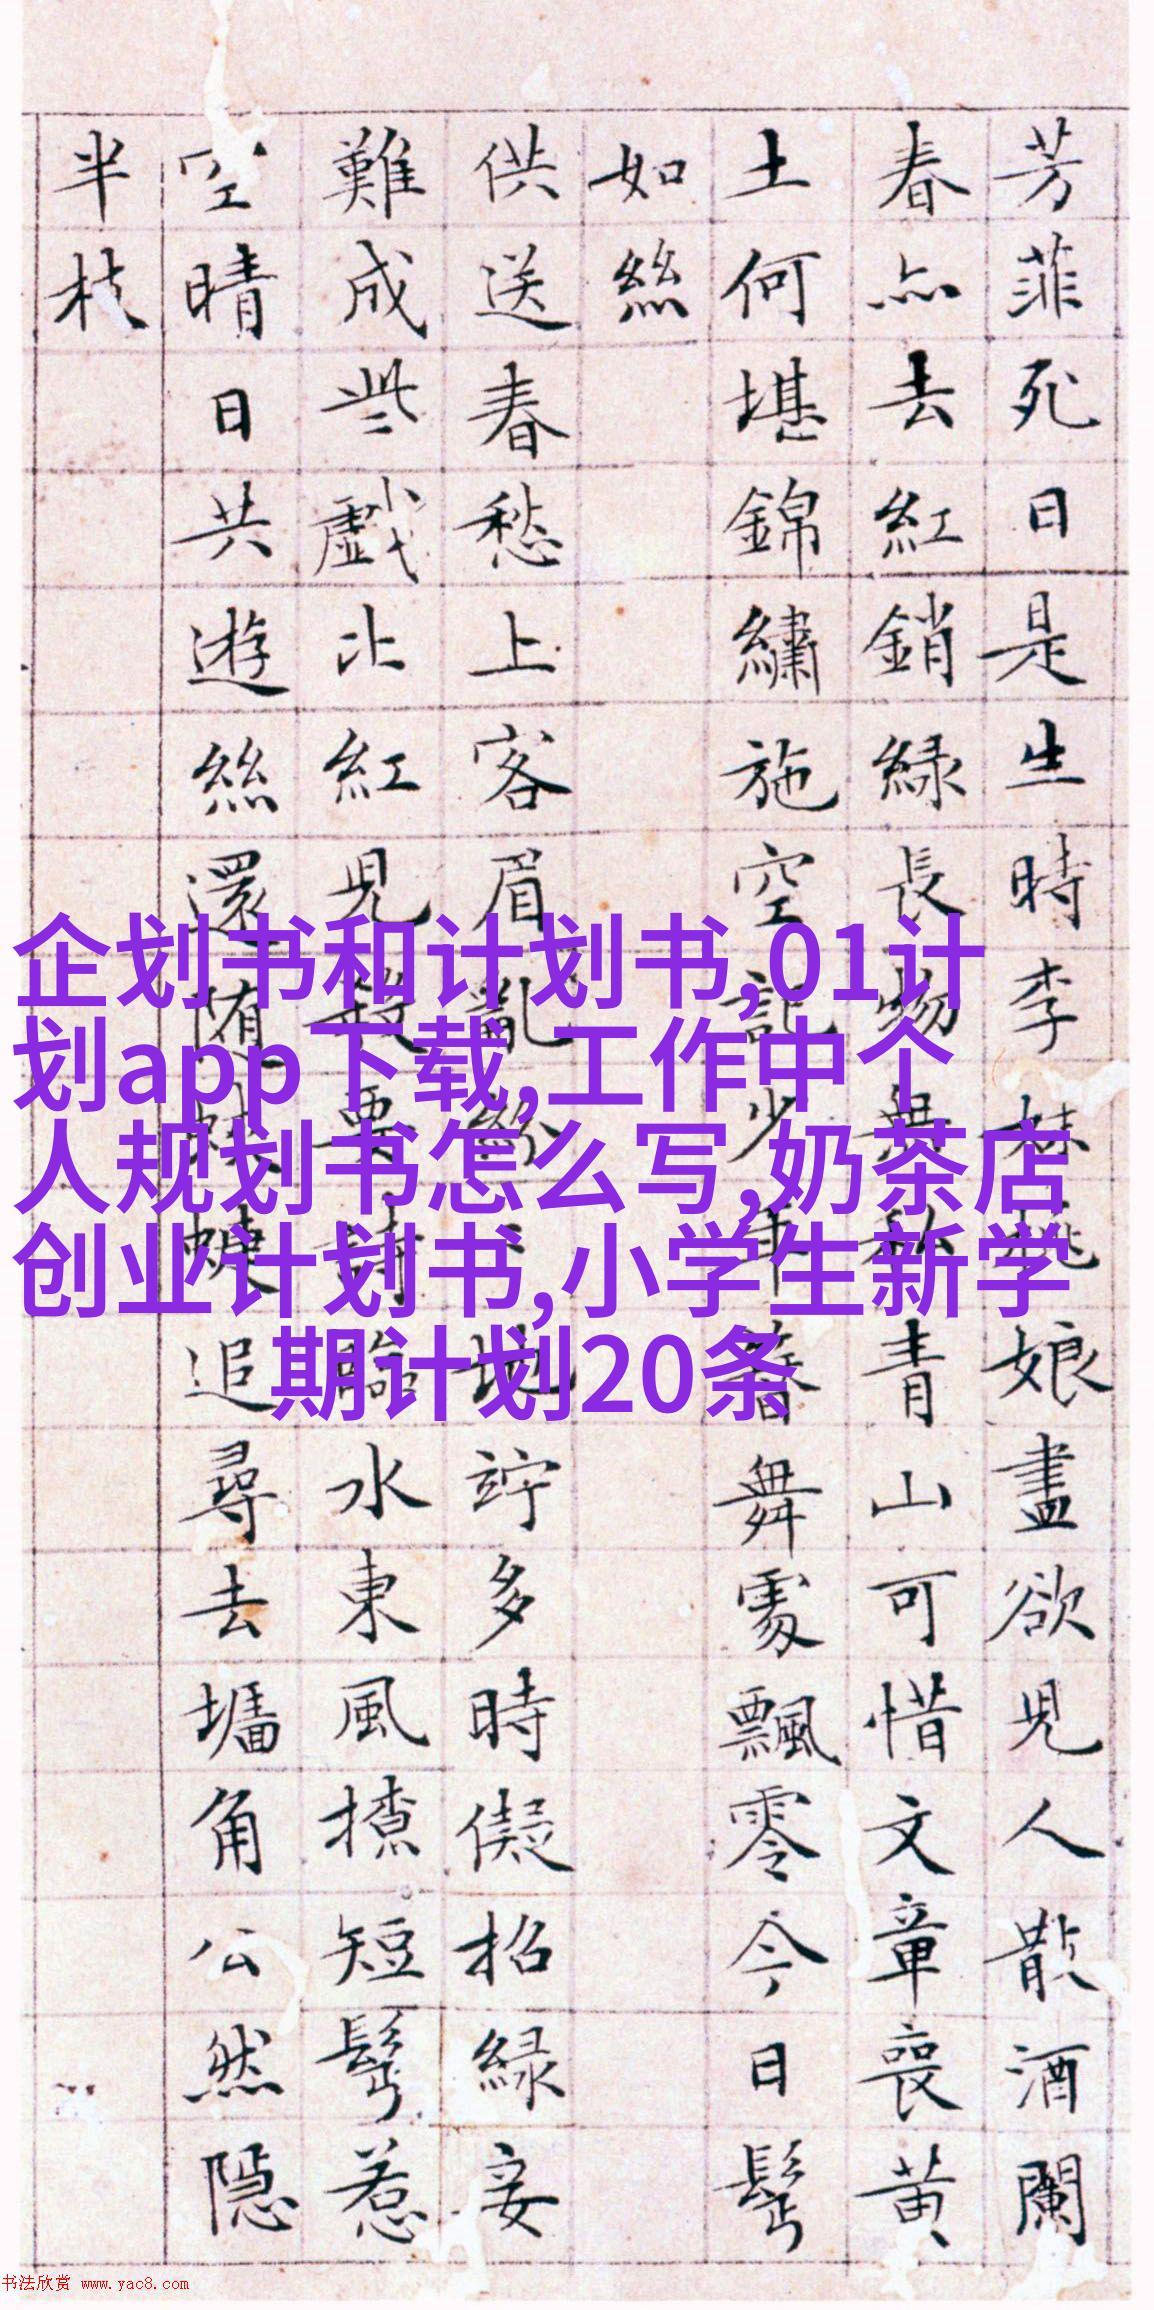 芳菲死日是生時李妹桃娘盡欲兒人散酒闌
春亦去紅銷綠長物無私青山可惜文章喪黃
土何堪錦繡施空記少年簪舞處飄零今日鬢
如絲
供送春愁上客眉亂紛〻地竚多時儗招綠妾
難成些戲比紅兒殺要詩臨水東風撩短鬢惹
空晴日共遊絲還陏蛺蝶追尋去墻角公然隱
半枝
企划书和计划书,01计
划app下载,工作中个
人规划书怎么写,奶茶店
创业计划书,小学生新学
期计划20条
书法欣赏 www.yac8.com